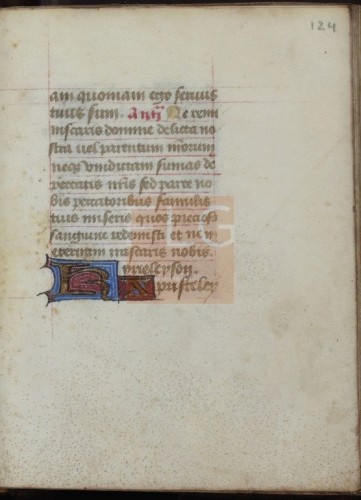 124
am quoniam ego servus
tuus sum. Añ Ne remi
niscaris domine delicta no
stra vel parentum nostrorum
neqz vindictam sumas de
peccatis nr̃is sed parce no
bis peccatoribus famulis
tuis miseris quos precioso
sanguine redemisti et ne in
eternum irascaris nobis.
Kyrieleyson.
Xpristeley